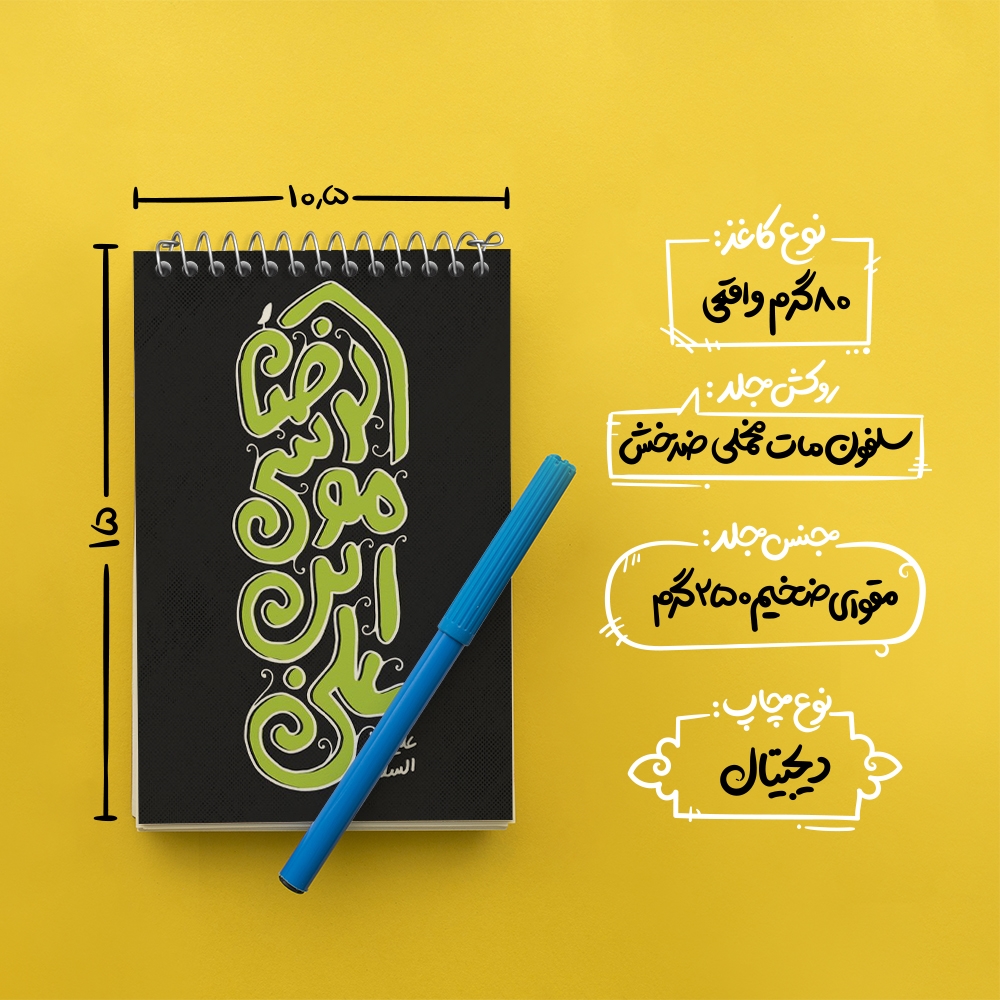 ۱۰٫۵
۱۵
علی
ابن
موسی
الرضا
علیه
السلا
نوع کاغذ:
۸۰گرم واقعی
روکش جلد:
سلفون مات مخملی ضدخش
جنس جلد:
مقوای ضخیم ۲۵۰گرم
نوع چاپ:
دیجیتال